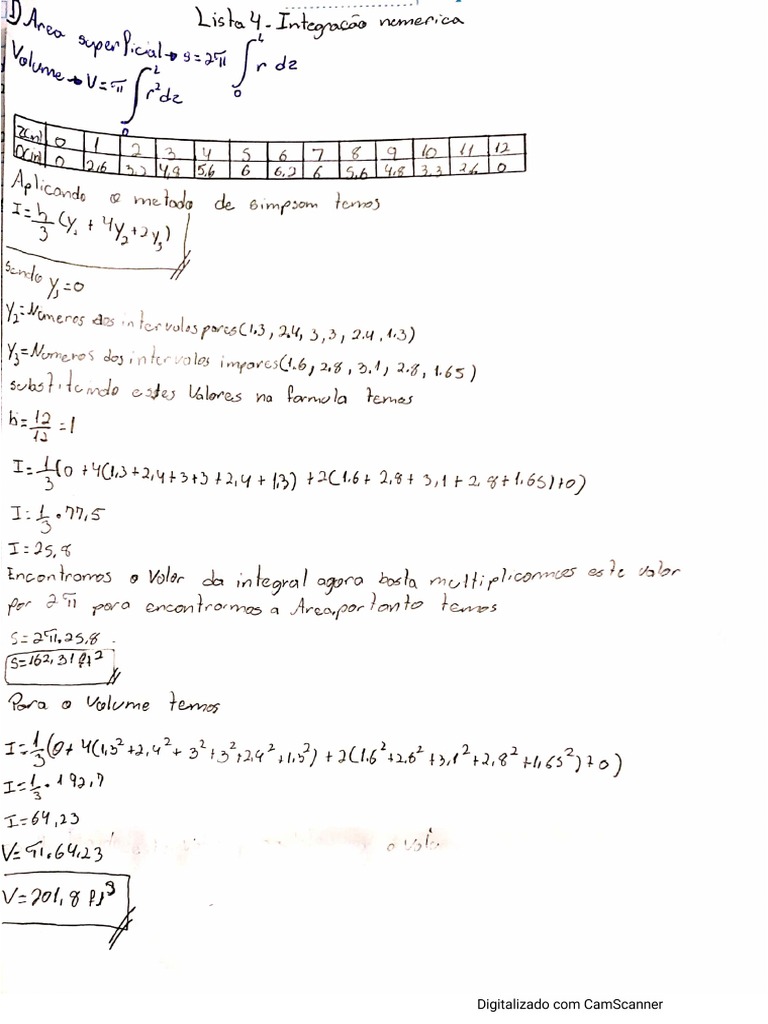 Lista 4 - Integração numerica
1) Area superficial → s=2π ∫₀ᴸ r dz
Volume → V=π ∫₀ᴸ r²dz
Z(m) 0 1 2 3 4 5 6 7 8 9 10 11 12
D(m) 0 2,6 3,2 4,8 5,6 6 6,2 6 5,6 4,8 3,3 2,6 0
Aplicando o metodo de simpsom temos
I=h/3 (y₁ + 4y₂+2y₃)
sendo y₁=0
Y₂=Números dos intervalos pares(1.3, 2.4, 3, 3, 2.4, 1.3)
Y₃=Numeros dos intervalos impares(1.6, 2.8, 3.1, 2.8, 1.65)
substituindo estes valores na formula temos
h=12/12=1
I=1/3(0+4(1,3+2,4+3+3+2,4+1,3)+2(1.6+2,8+3,1+2,8+1.65)+0)
I=1/3 • 77,5
I=25,8
Encontramos o valor da integral agora basta multiplicarmos este valor
por 2π para encontrarmos a Area, portanto temos
S=2π.25,8
S=162,31 ft²
Para o volume temos
I=1/3(0+4(1,3²+2,4²+3²+3²+2,4²+1,3²)+2(1.6²+2.6²+3,1²+2,8²+1,65²)+0)
I=1/3 • 192,7
I=64,23
V=π.64,23
V=201,8 ft³
Digitalizado com CamScanner